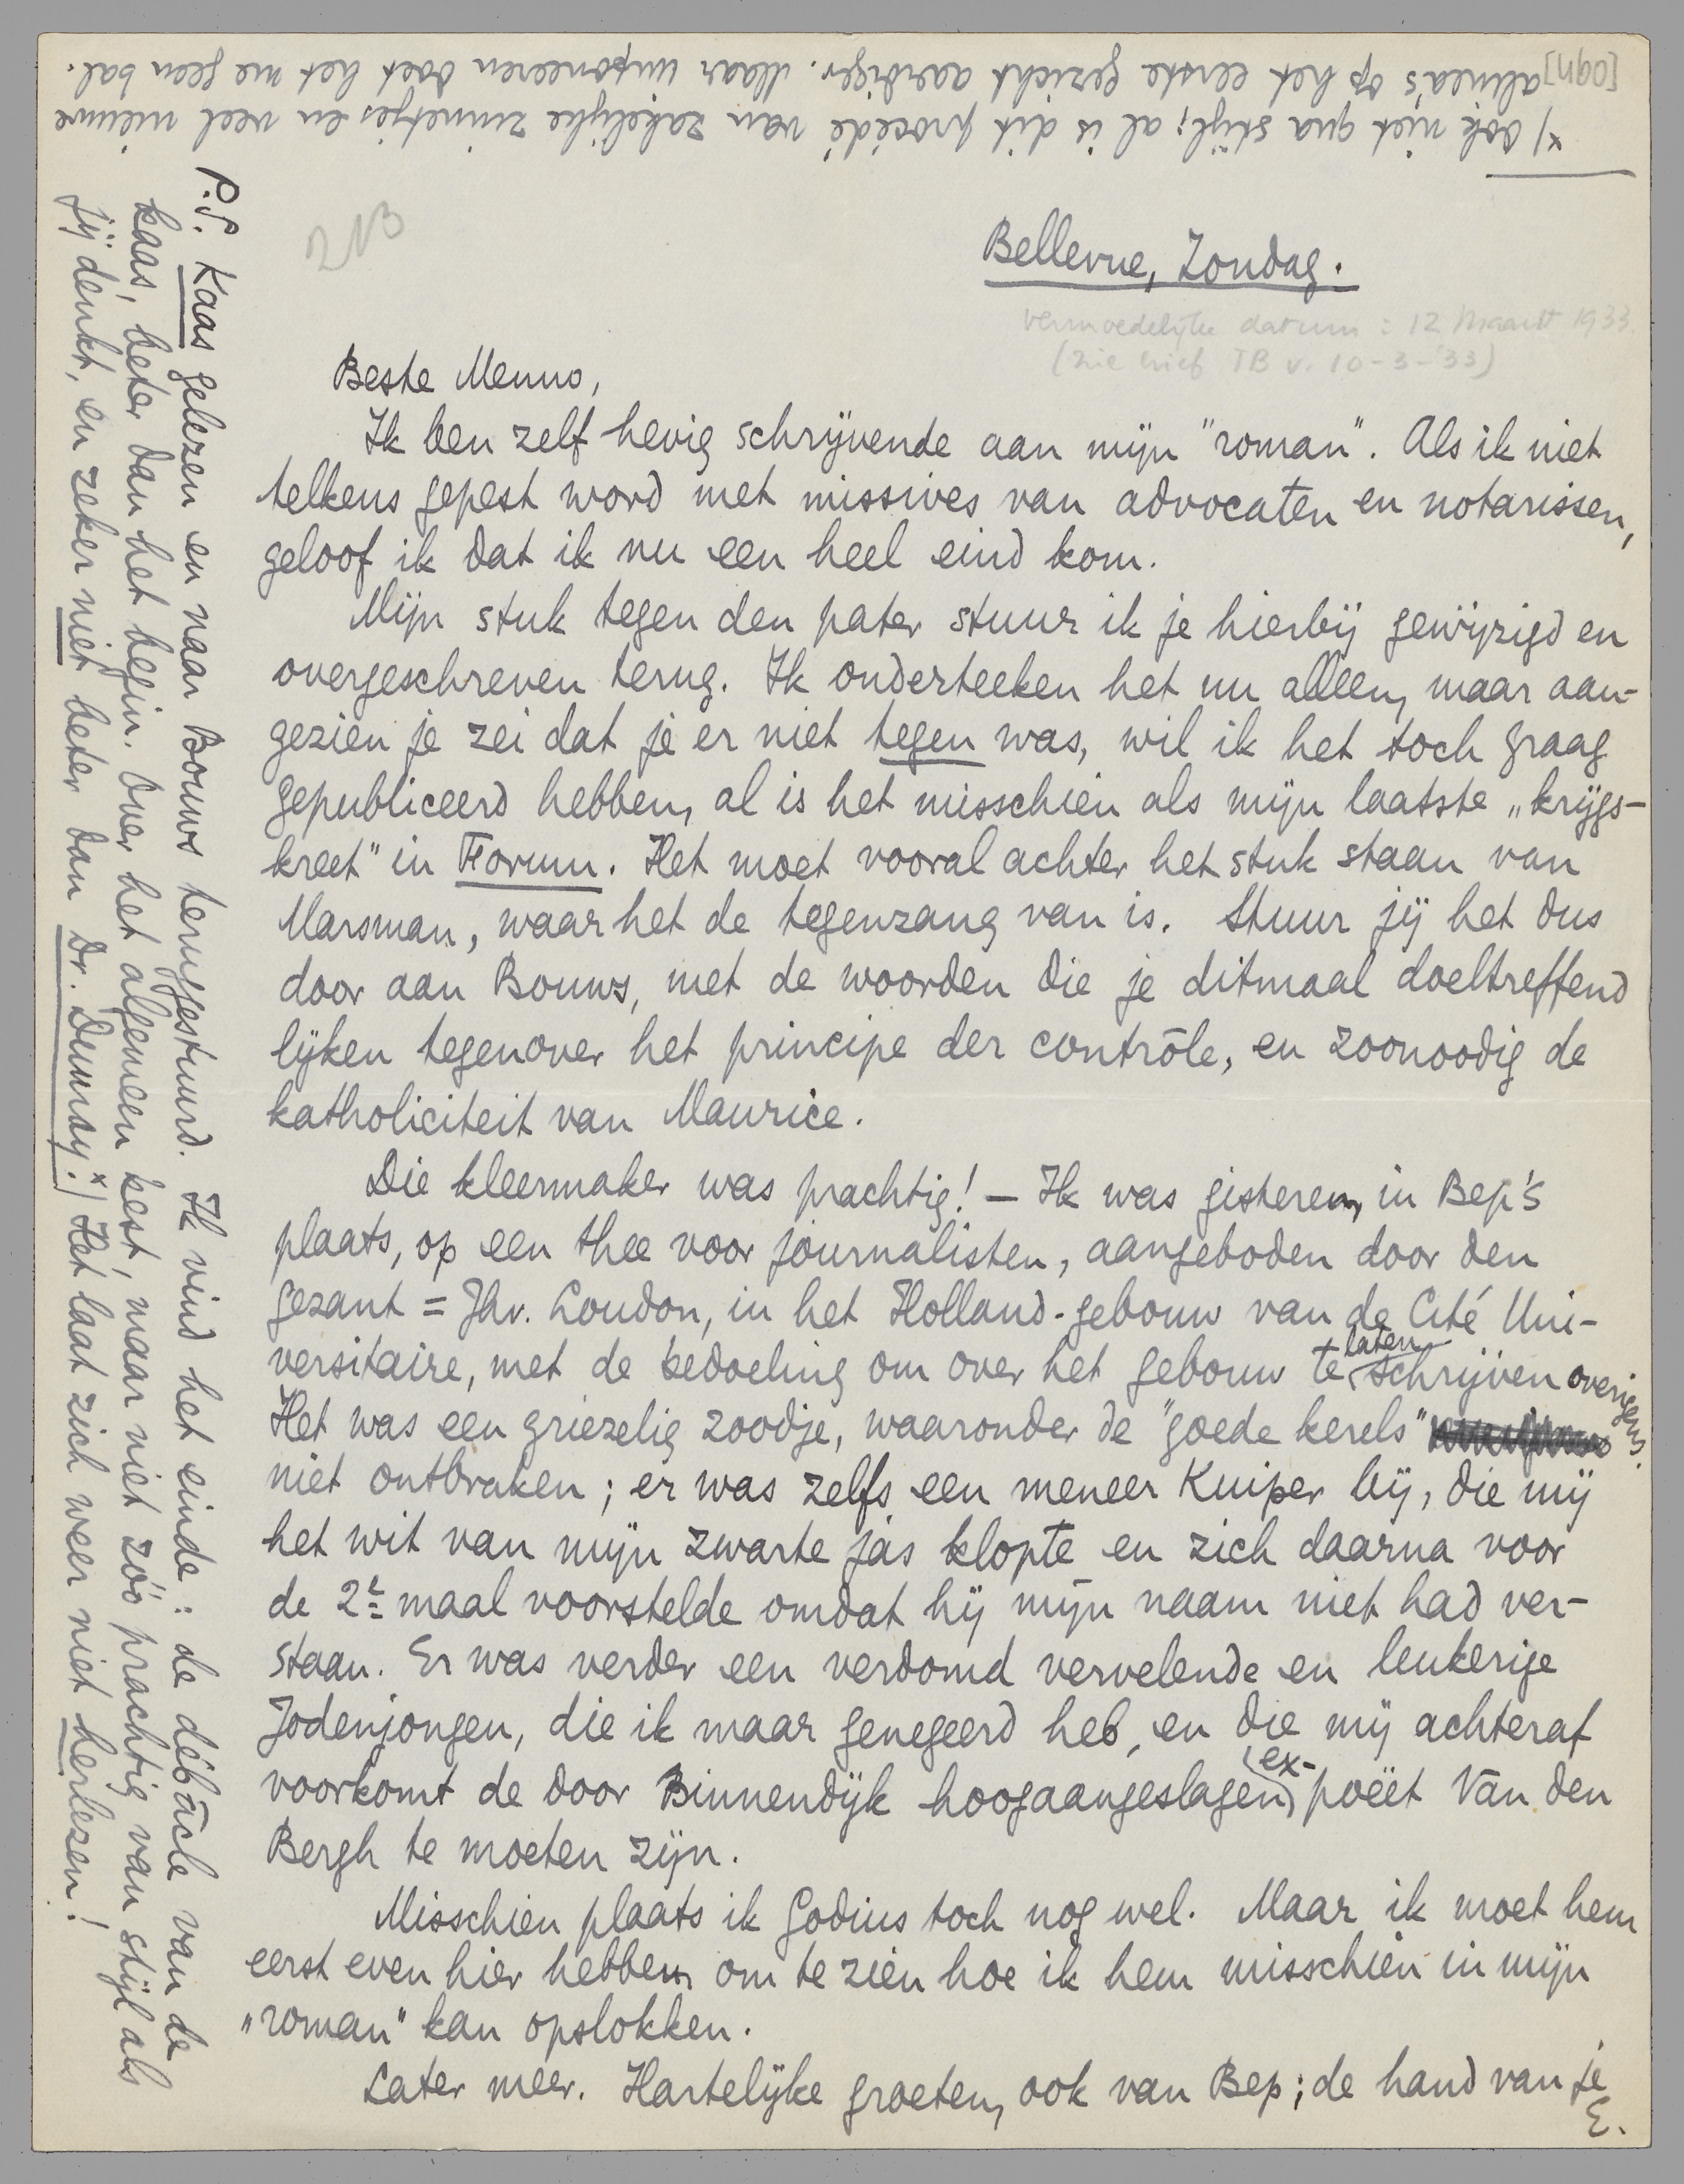 Bellevue, Zondag.
vermoedelijke datum : 12 Maart 1933.
(zie brief TB v. 10-3-'33)
213
Beste Menno,
Ik ben zelf hevig schrijvende aan mijn "roman". Als ik niet
telkens gepest word met missives van advocaten en notarissen,
geloof ik dat ik nu een heel eind kom.
Mijn stuk tegen den pater stuur ik je hierbij gewijzigd en
overgeschreven terug. Ik onderteeken het nu alleen, maar aan-
gezien je zei dat je er niet tegen was, wil ik het toch graag
gepubliceerd hebben, al is het misschien als mijn laatste „krijgs-
kreet" in Forum. Het moet vooral achter het stuk staan van
Marsman, waar het de tegenzang van is. Stuur jij het dus
door aan Bouws, met de woorden die je ditmaal doeltreffend
lijken tegenover het principe der contrôle, en zoonoodig de
katholiciteit van Maurice.
Die kleermaker was prachtig! – Ik was gisteren, in Bep's
plaats, op een thee voor journalisten, aangeboden door den
gezant = Jhr. Loudon, in het Holland-gebouw van de Cité Uni-
versitaire, met de bedoeling om over het gebouw te laten schrijven overigens.
Het was een griezelig zoodje, waaronder de "goede kerels"
niet ontbraken; er was zelfs een meneer Kuiper bij, die mij
het wit van mijn zwarte jas klopte en zich daarna voor
de 2e maal voorstelde omdat hij mijn naam niet had ver-
staan. Er was verder een verdomd vervelende en leukerige
Jodenjongen, die ik maar genegeerd heb, en die mij achteraf
voorkomt de door Binnendijk hoogaangeslagen (ex-) poëet Van den
Bergh te moeten zijn.
Misschien plaats ik Godius toch nog wel. Maar ik moet hem
eerst even hier hebben, om te zien hoe ik hem misschien in mijn
„roman" kan opslokken.
Later meer. Hartelijke groeten, ook van Bep; de hand van je
E.
P.S. Kaas gelezen en naar Bouws teruggestuurd. Ik vind het einde: de débâcle van de
kaas, beter dan het begin. Over het algemeen best, maar niet zóó prachtig van stijl als
jij denkt, en zeker niet beter dan Dr. Dumay. x) Het laat zich weer niet herlezen!
x) Ook niet qua stijl; al is dit procédé van zakelijke zinnetjes en veel nieuwe
alinea's op het eerste gezicht aardiger. Maar imponeeren doet het me geen bal.
[ogn]